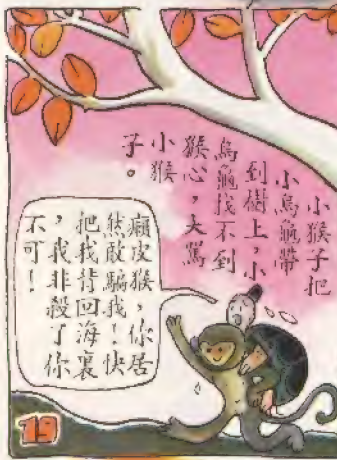 小猴子把
小烏龜帶
到樹上,小
烏龜找不到
猴心,大罵
小猴
子。
癩皮猴,你居
然敢騙我!快
把我背回海裏
,我非殺了你
不可!
19